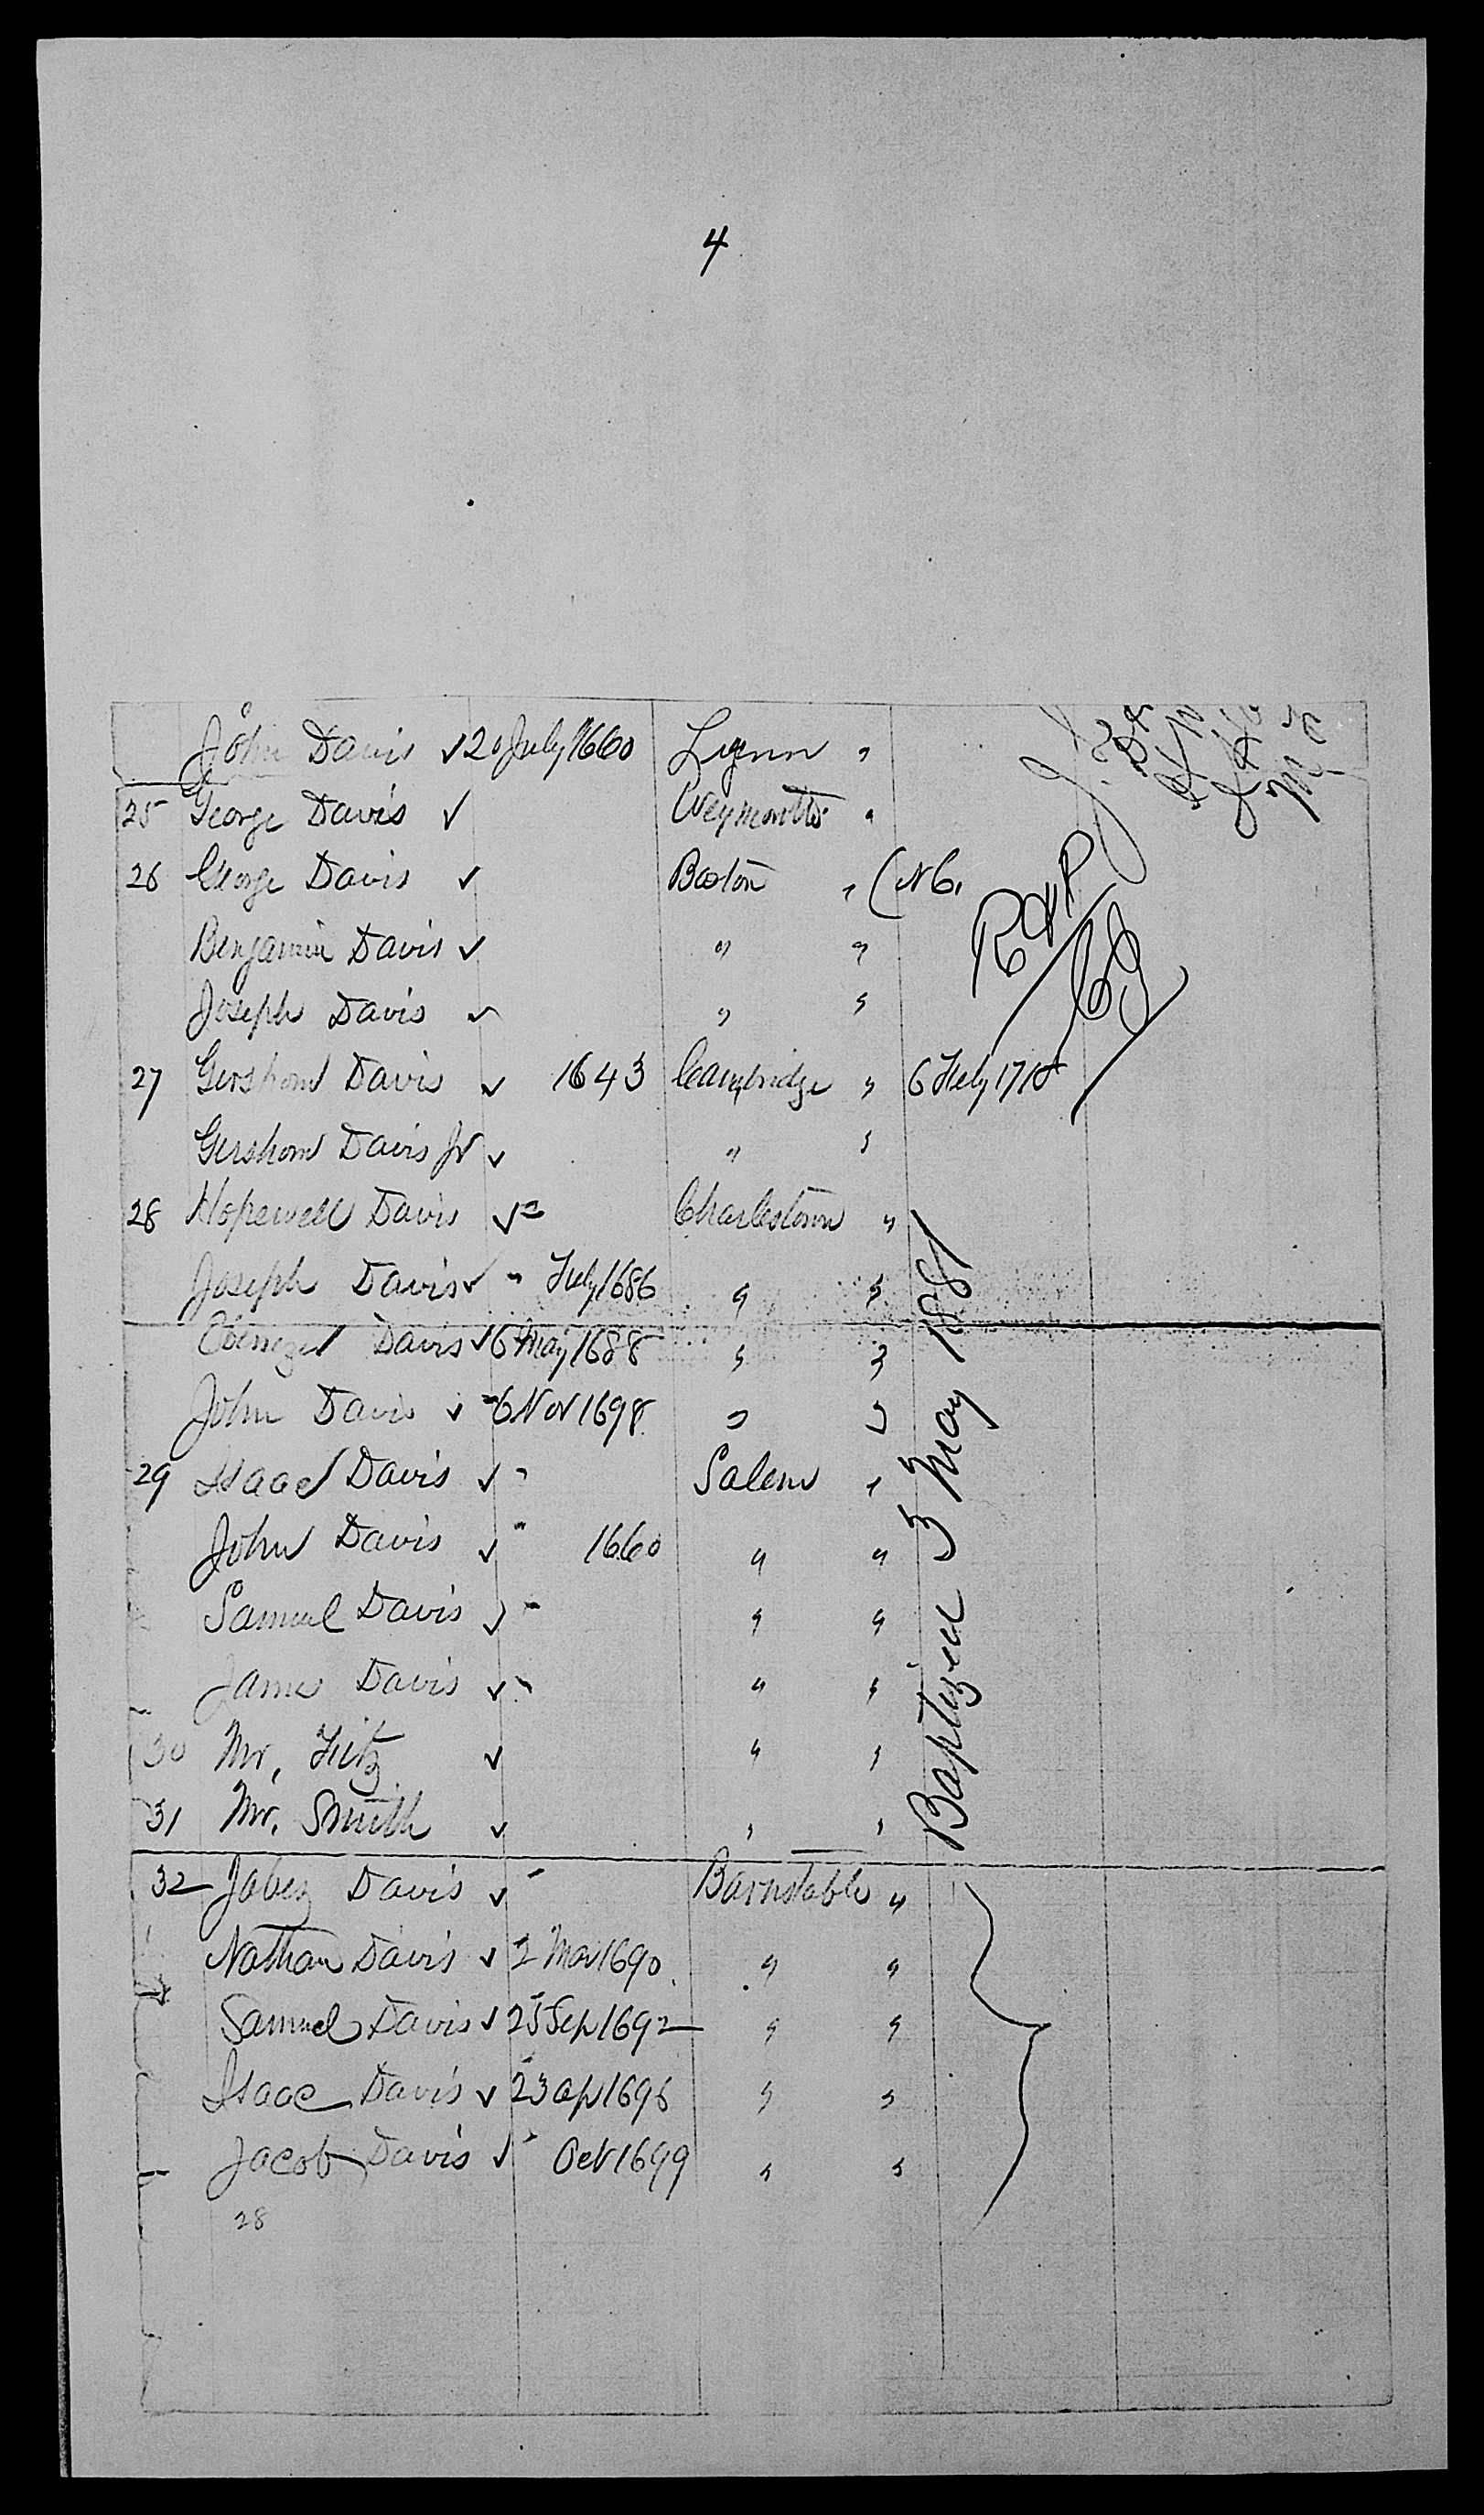 4
John Davis ✓ 20 July 1660 Lynn "
25 George Davis ✓ Weymouth "
26 George Davis ✓ Boston " (N C,
Benjamin Davis ✓ " "
Joseph Davis ✓ " "
27 Gershom Davis ✓ 1643 Cambridge " 6 Feby 1718
Gershom Davis Jr ✓ " "
28 Hopewell Davis ✓ " Charlestown "
Joseph Davis ✓ " Feby 1686 " "
Ebenezer Davis ✓ 6 May 1688 " "
John Davis ✓ 6 Nov 1698 " "
29 Isaac Davis ✓ " Salem "
John Davis ✓ " 1660 " "
Samuel Davis ✓ " " "
James Davis ✓ " " "
30 Mr. Fitz ✓ " "
31 Mr. Smith ✓ " "
Baptized 3 May 1881
32 Jabez Davis ✓ " Barnstable "
Nathan Davis ✓ 2 Mar 1690 " "
Samuel Davis ✓ 25 Sep 1692 " "
Isaac Davis ✓ 23 Ap 1696 " "
Jacob Davis ✓ " Oct 1699 " "
28